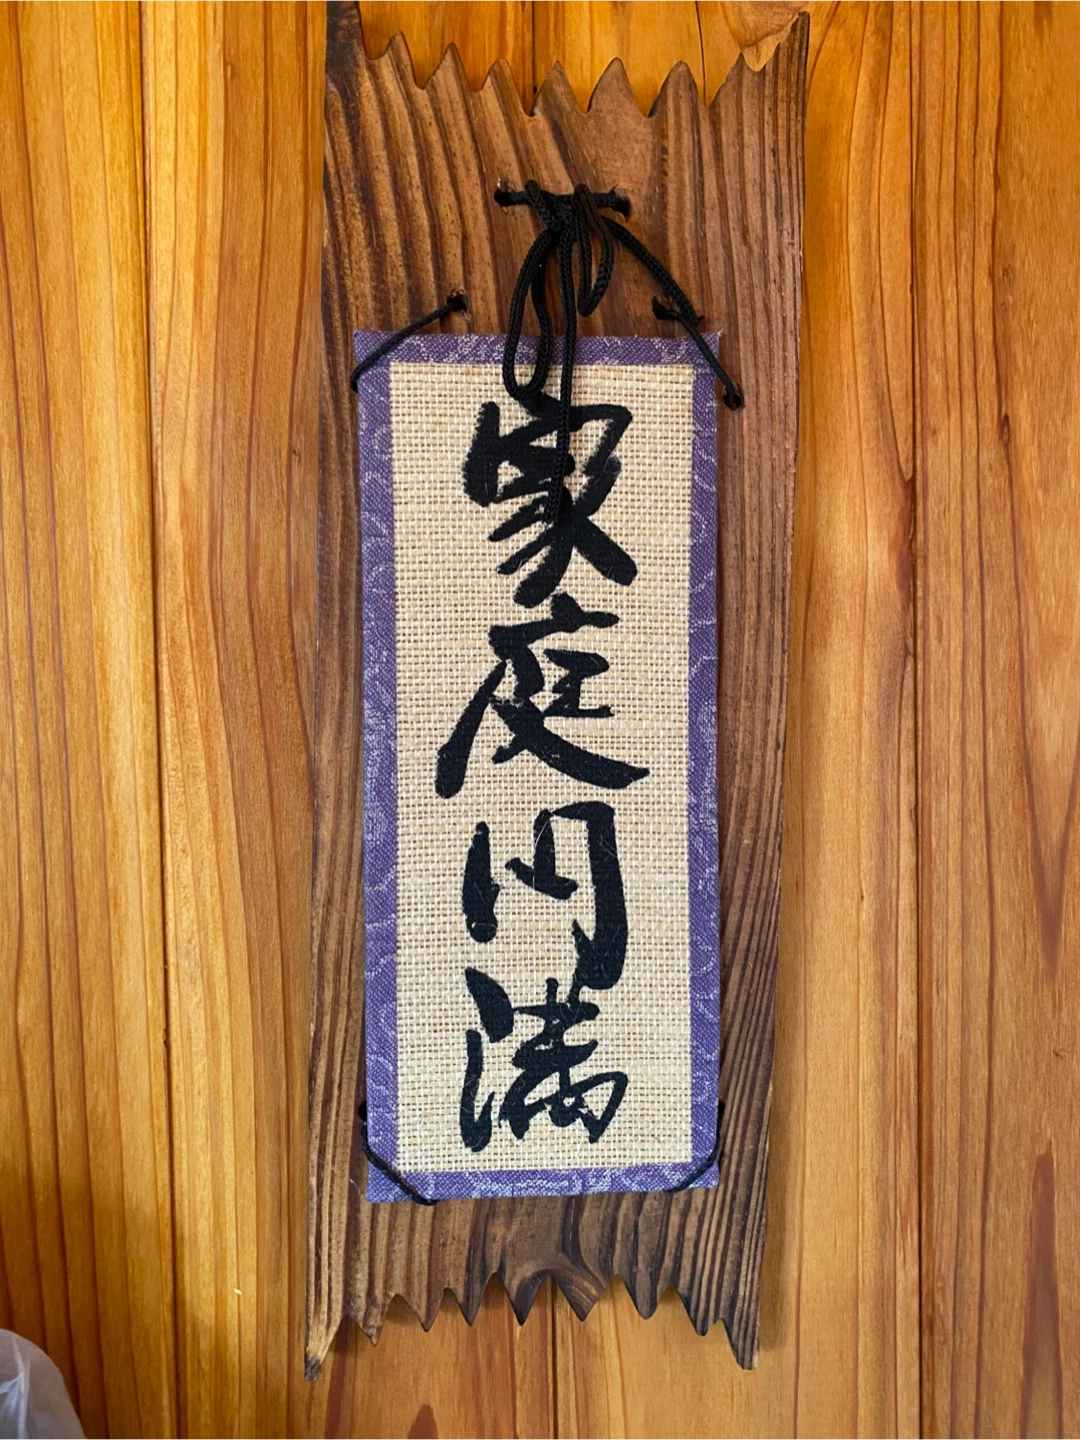 家庭円満